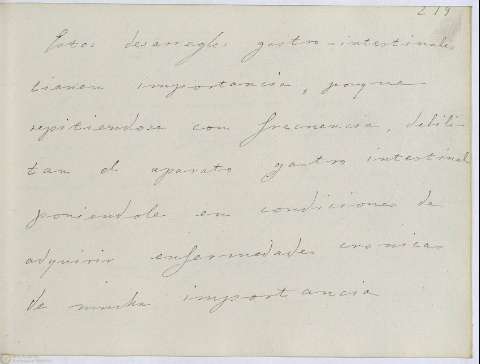 219
Estos desarreglos gastro-intestinales
tienen importancia, porque
repitiendose con frecuencia, debili-
tan el aparato gastro intestinal
poniendole en condiciones de
adquirir enfermedades cronicas
de mucha importancia